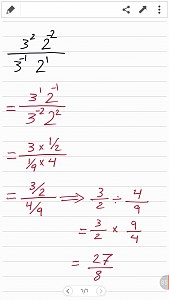 3² 2⁻²
3⁻¹ 2¹
= 3¹ 2⁻¹
3⁻² 2²
= 3 × 1/2
1/9 × 4
= 3/2 / 4/9 ⟹ 3/2 ÷ 4/9
= 3/2 × 9/4
= 27/8